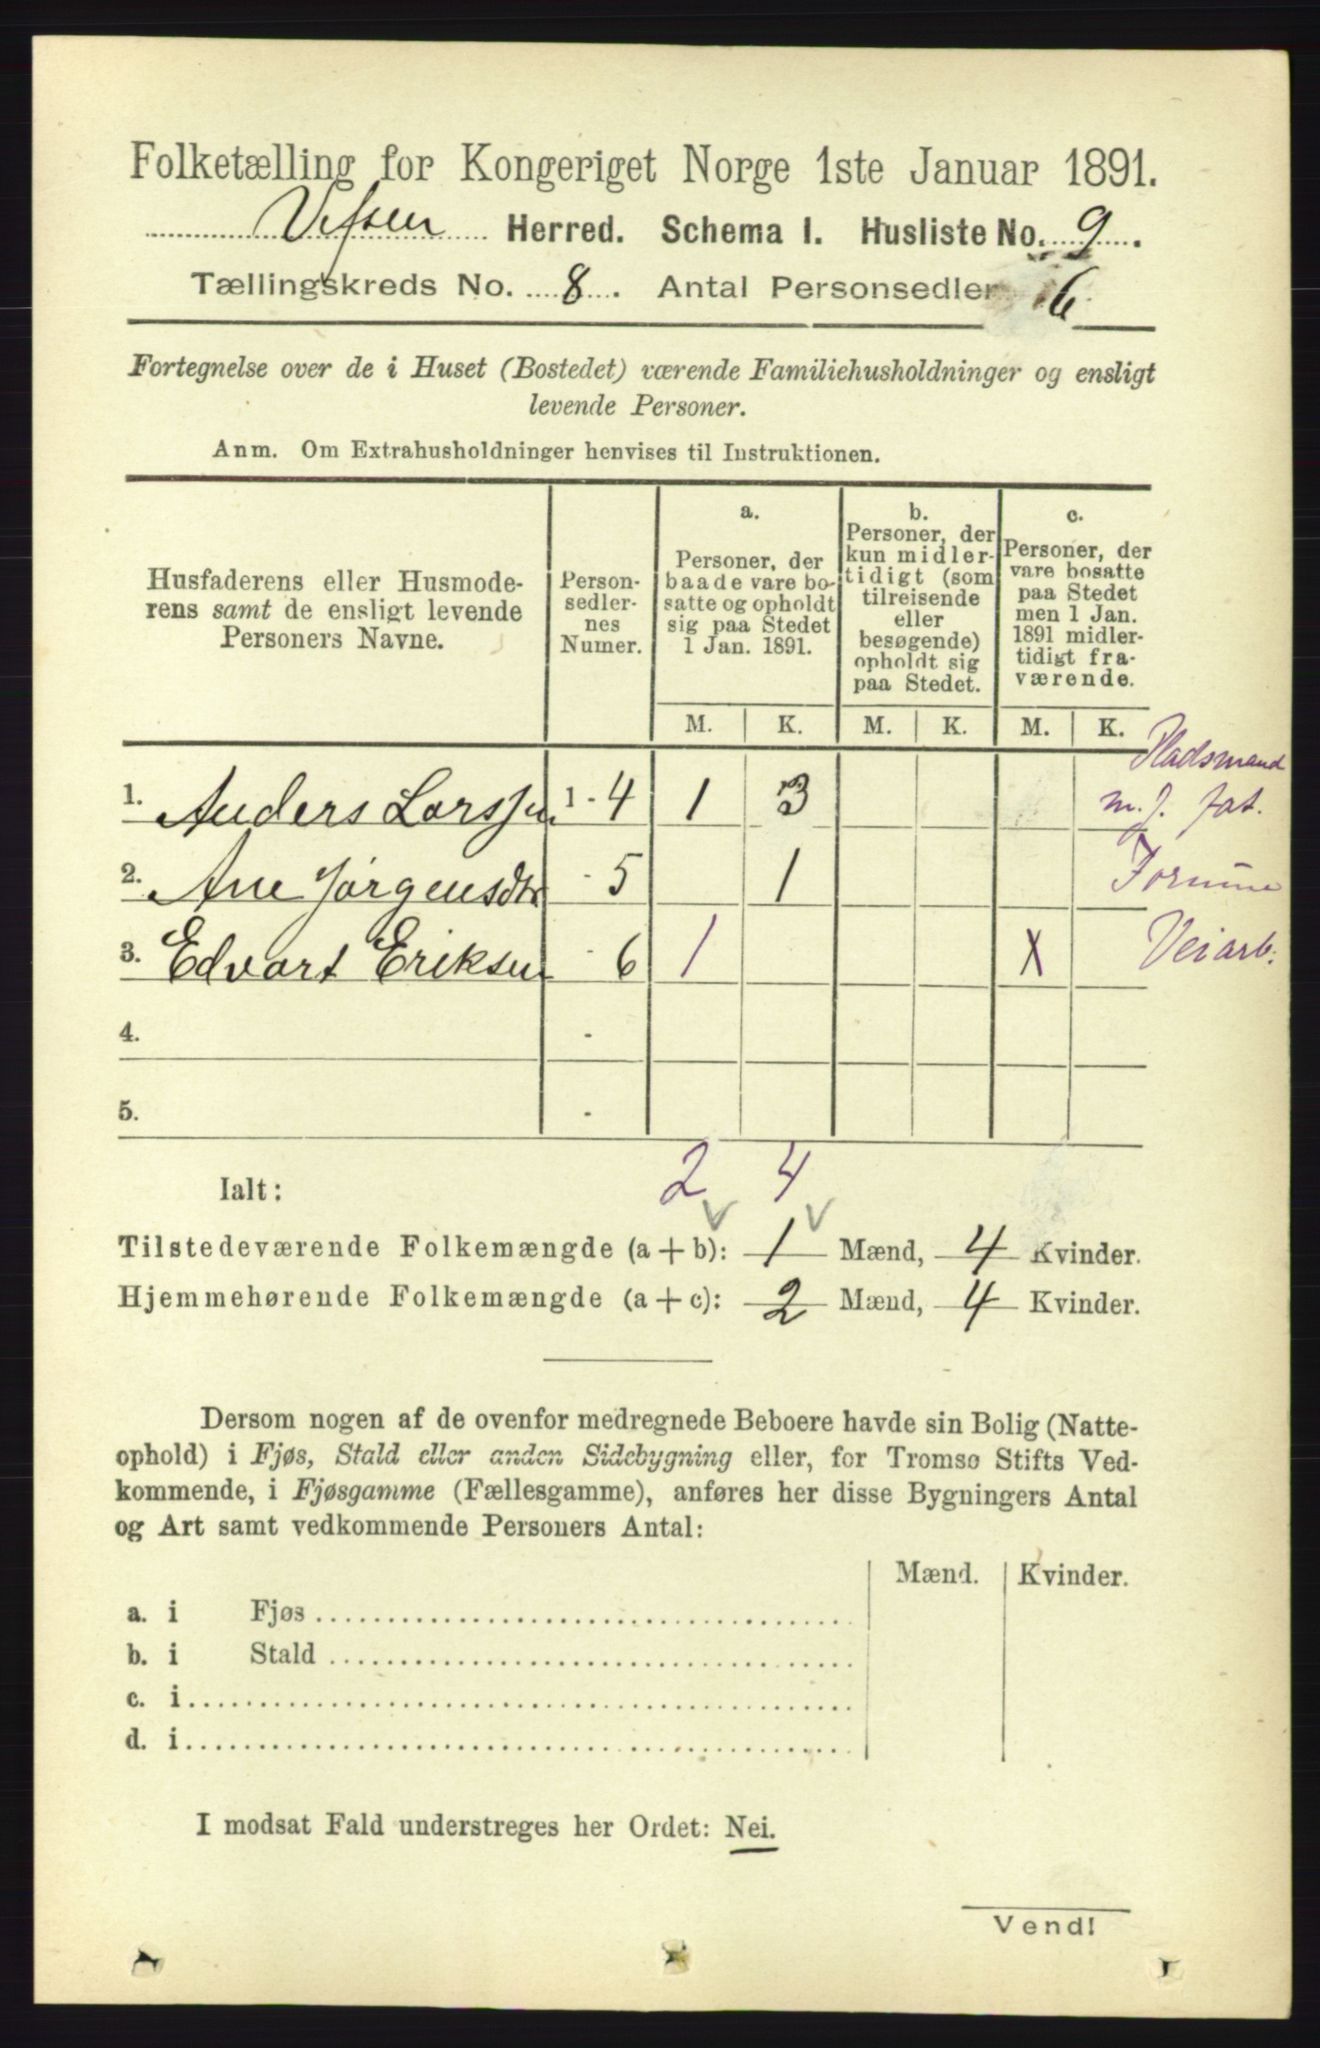 Folketælling for Kongeriget Norge 1ste Januar 1891.
Vefsen Herred. Schema I. Husliste No. 9.
Tællingskreds No. 8. Antal Personsedler 6
Fortegnelse over de i Huset (Bostedet) værende Familiehusholdninger og ensligt
levende Personer.
Anm. Om Extrahusholdninger henvises til Instruktionen.
Husfaderens eller Husmode-
rens samt de ensligt levende
Personers Navne.
Person-
sedler-
nes
Numer.
a.
Personer, der
baade vare bo-
satte og opholdt
sig paa Stedet
1 Jan. 1891.
b.
Personer, der
kun midler-
tidigt (som
tilreisende
eller
besøgende)
opholdt sig
paa Stedet.
c.
Personer, der
vare bosatte
paa Stedet
men 1 Jan.
1891 midler-
tidigt fra-
værende.
M. K. M. K. M. K.
Pladsmand
1. Anders Larssen 1-4 1 3 m. J. fat.
2. Ane Jørgensdtr - 5 1
3. Edvart Eriksen - 6 1 X Veiarb.
4. -
5. -
Ialt: 2 4
Tilstedeværende Folkemængde (a+b): 1 Mænd, 4 Kvinder.
Hjemmehørende Folkemængde (a+c): 2 Mænd, 4 Kvinder.
Dersom nogen af de ovenfor medregnede Beboere havde sin Bolig (Natte-
ophold) i Fjøs, Stald eller anden Sidebygning eller, for Tromsø Stifts Ved-
kommende, i Fjøsgamme (Fællesgamme), anføres her disse Bygningers Antal
og Art samt vedkommende Personers Antal:
Mænd. Kvinder.
a. i Fjøs
b. i Stald
c. i
d. i
I modsat Fald understreges her Ordet: Nei.
Vend!